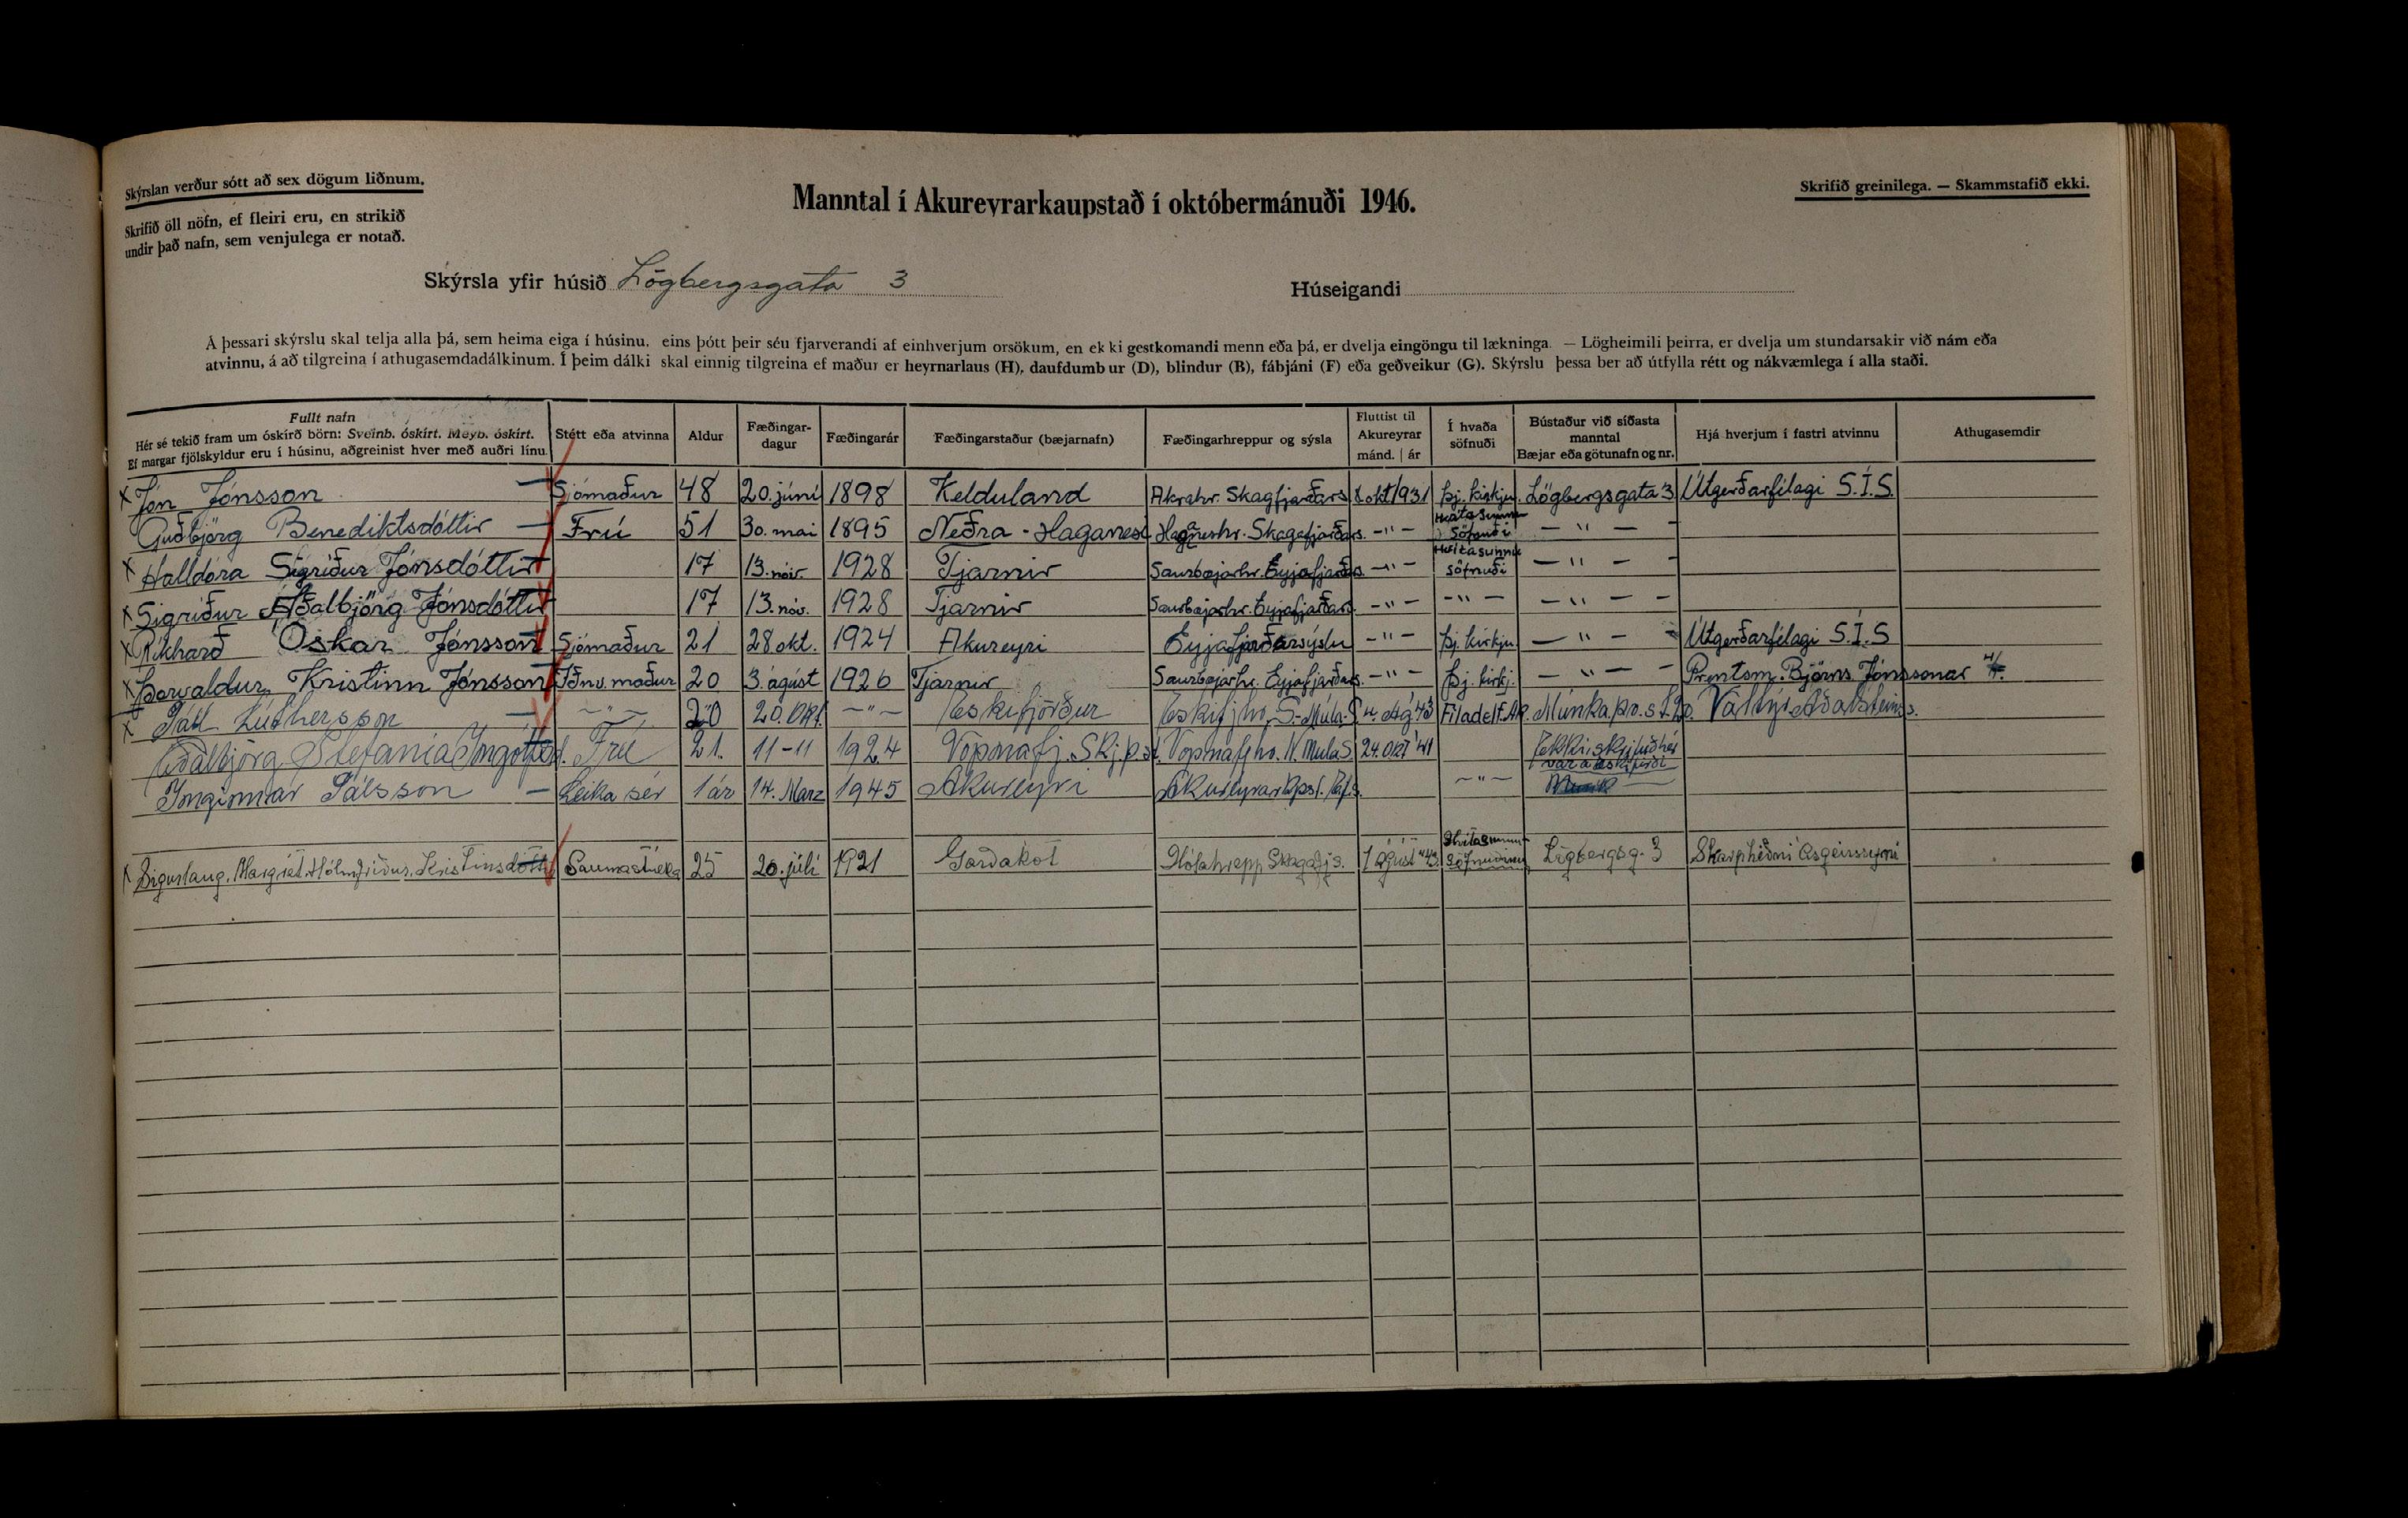 Skýrslan verður sótt að sex dögum liðnum.
Skrifið öll nöfn, ef fleiri eru, en strikið
undir það nafn, sem venjulega er notað.
Manntal í Akureyrarkaupstað í októbermánuði 1946.
Skrifið greinilega. — Skammstafið ekki.
Skýrsla yfir húsið Lögbergsgata 3
Húseigandi
Á þessari skýrslu skal telja alla þá, sem heima eiga í húsinu, eins þótt þeir séu fjarverandi af einhverjum orsökum, en ekki gestkomandi menn eða þá, er dvelja eingöngu til lækninga. — Lögheimili þeirra, er dvelja um stundarsakir við nám eða
atvinnu, á að tilgreina í athugasemdadálkinum. Í þeim dálki skal einnig tilgreina ef maður er heyrnarlaus (H), daufdumbur (D), blindur (B), fábjáni (F) eða geðveikur (G). Skýrslu þessa ber að útfylla rétt og nákvæmlega í alla staði.
Fullt nafn
Hér sé tekið fram um óskírð börn: Sveinb. óskírt. Meyb. óskírt.
Ef margar fjölskyldur eru í húsinu, aðgreinist hver með auðri línu.
Stétt eða atvinna
Aldur
Fæðingar-
dagur
Fæðingarár
Fæðingarstaður (bæjarnafn)
Fæðingarhreppur og sýsla
Fluttist til
Akureyrar
mánd. | ár
Í hvaða
söfnuði
Bústaður við síðasta
manntal
Bæjar eða götunafn og nr.
Hjá hverjum í fastri atvinnu
Athugasemdir
x Jón Jónsson — Sjómaður 48 20. júní 1898 Kelduland Akrahr. Skagfjarðars 8 okt/931 Þj. kirkju. Lögbergsgata 3 Útgerðarfélagi S.Í.S.
Guðbjörg Benediktsdóttir — Frú 51 30. mai 1895 Neðra-Haganesi Haganeshr. Skagafjarðars. -"- Hvítasunnu söfnuði — " — -
x Halldóra Sigríður Jónsdóttir 17 13. nóv. 1928 Tjarnir Saurbæjarhr. Eyjafjarðars. -"- Hvítasunnu söfnuði — " — -
x Sigríður Aðalbjörg Jónsdóttir 17 13. nóv. 1928 Tjarnir Saurbæjarhr. Eyjafjarðars. -"- -"- — " — -
x Ríkharð Óskar Jónsson Sjómaður 21 28 okt. 1924 Akureyri Eyjafjarðarsýslu -"- Þj. kirkju — " — - Útgerðarfélagi S.Í.S
x Þorvaldur Kristinn Jónsson Iðnv. maður 20 3. ágúst 1926 Tjarnir Saurbæjarhr. Eyjafjarðars. -"- Þj. kirkj. — " — - Prentsm. Björns Jónssonar
x Páll Lúthersson — -"- 20 20. Okt. -"- Eskifjörður Eskifjhr. S.-Múla-S. Ág 43 Filadelf. Ak. Munka.þv.st. 20. Valtýr Aðalsteins.
Aðalbjörg Stefanía Ingólfsd. Frú 21. 11-11 1924 Vopnafj. Skj.þ.st. Vopnafj hr. N. MúlaS. 24. Okt '41 Ekki skrifuð hér var á Eskifirði
Ingimar Pálsson — Leika sér 1 ár 14. Marz 1945 Akureyri Akureyrar -"-
x Sigurlaug. Margrét. Hólmfríður. Kristinsdóttir Saumastúlka 25 20. júlí 1921 Garðakot Hólahrepp Skagafj s. 1 ágúst '43. Hvítasunnu söfnuðinum Lögbergsg. 3 Skarphéðni Ásgeirssyni